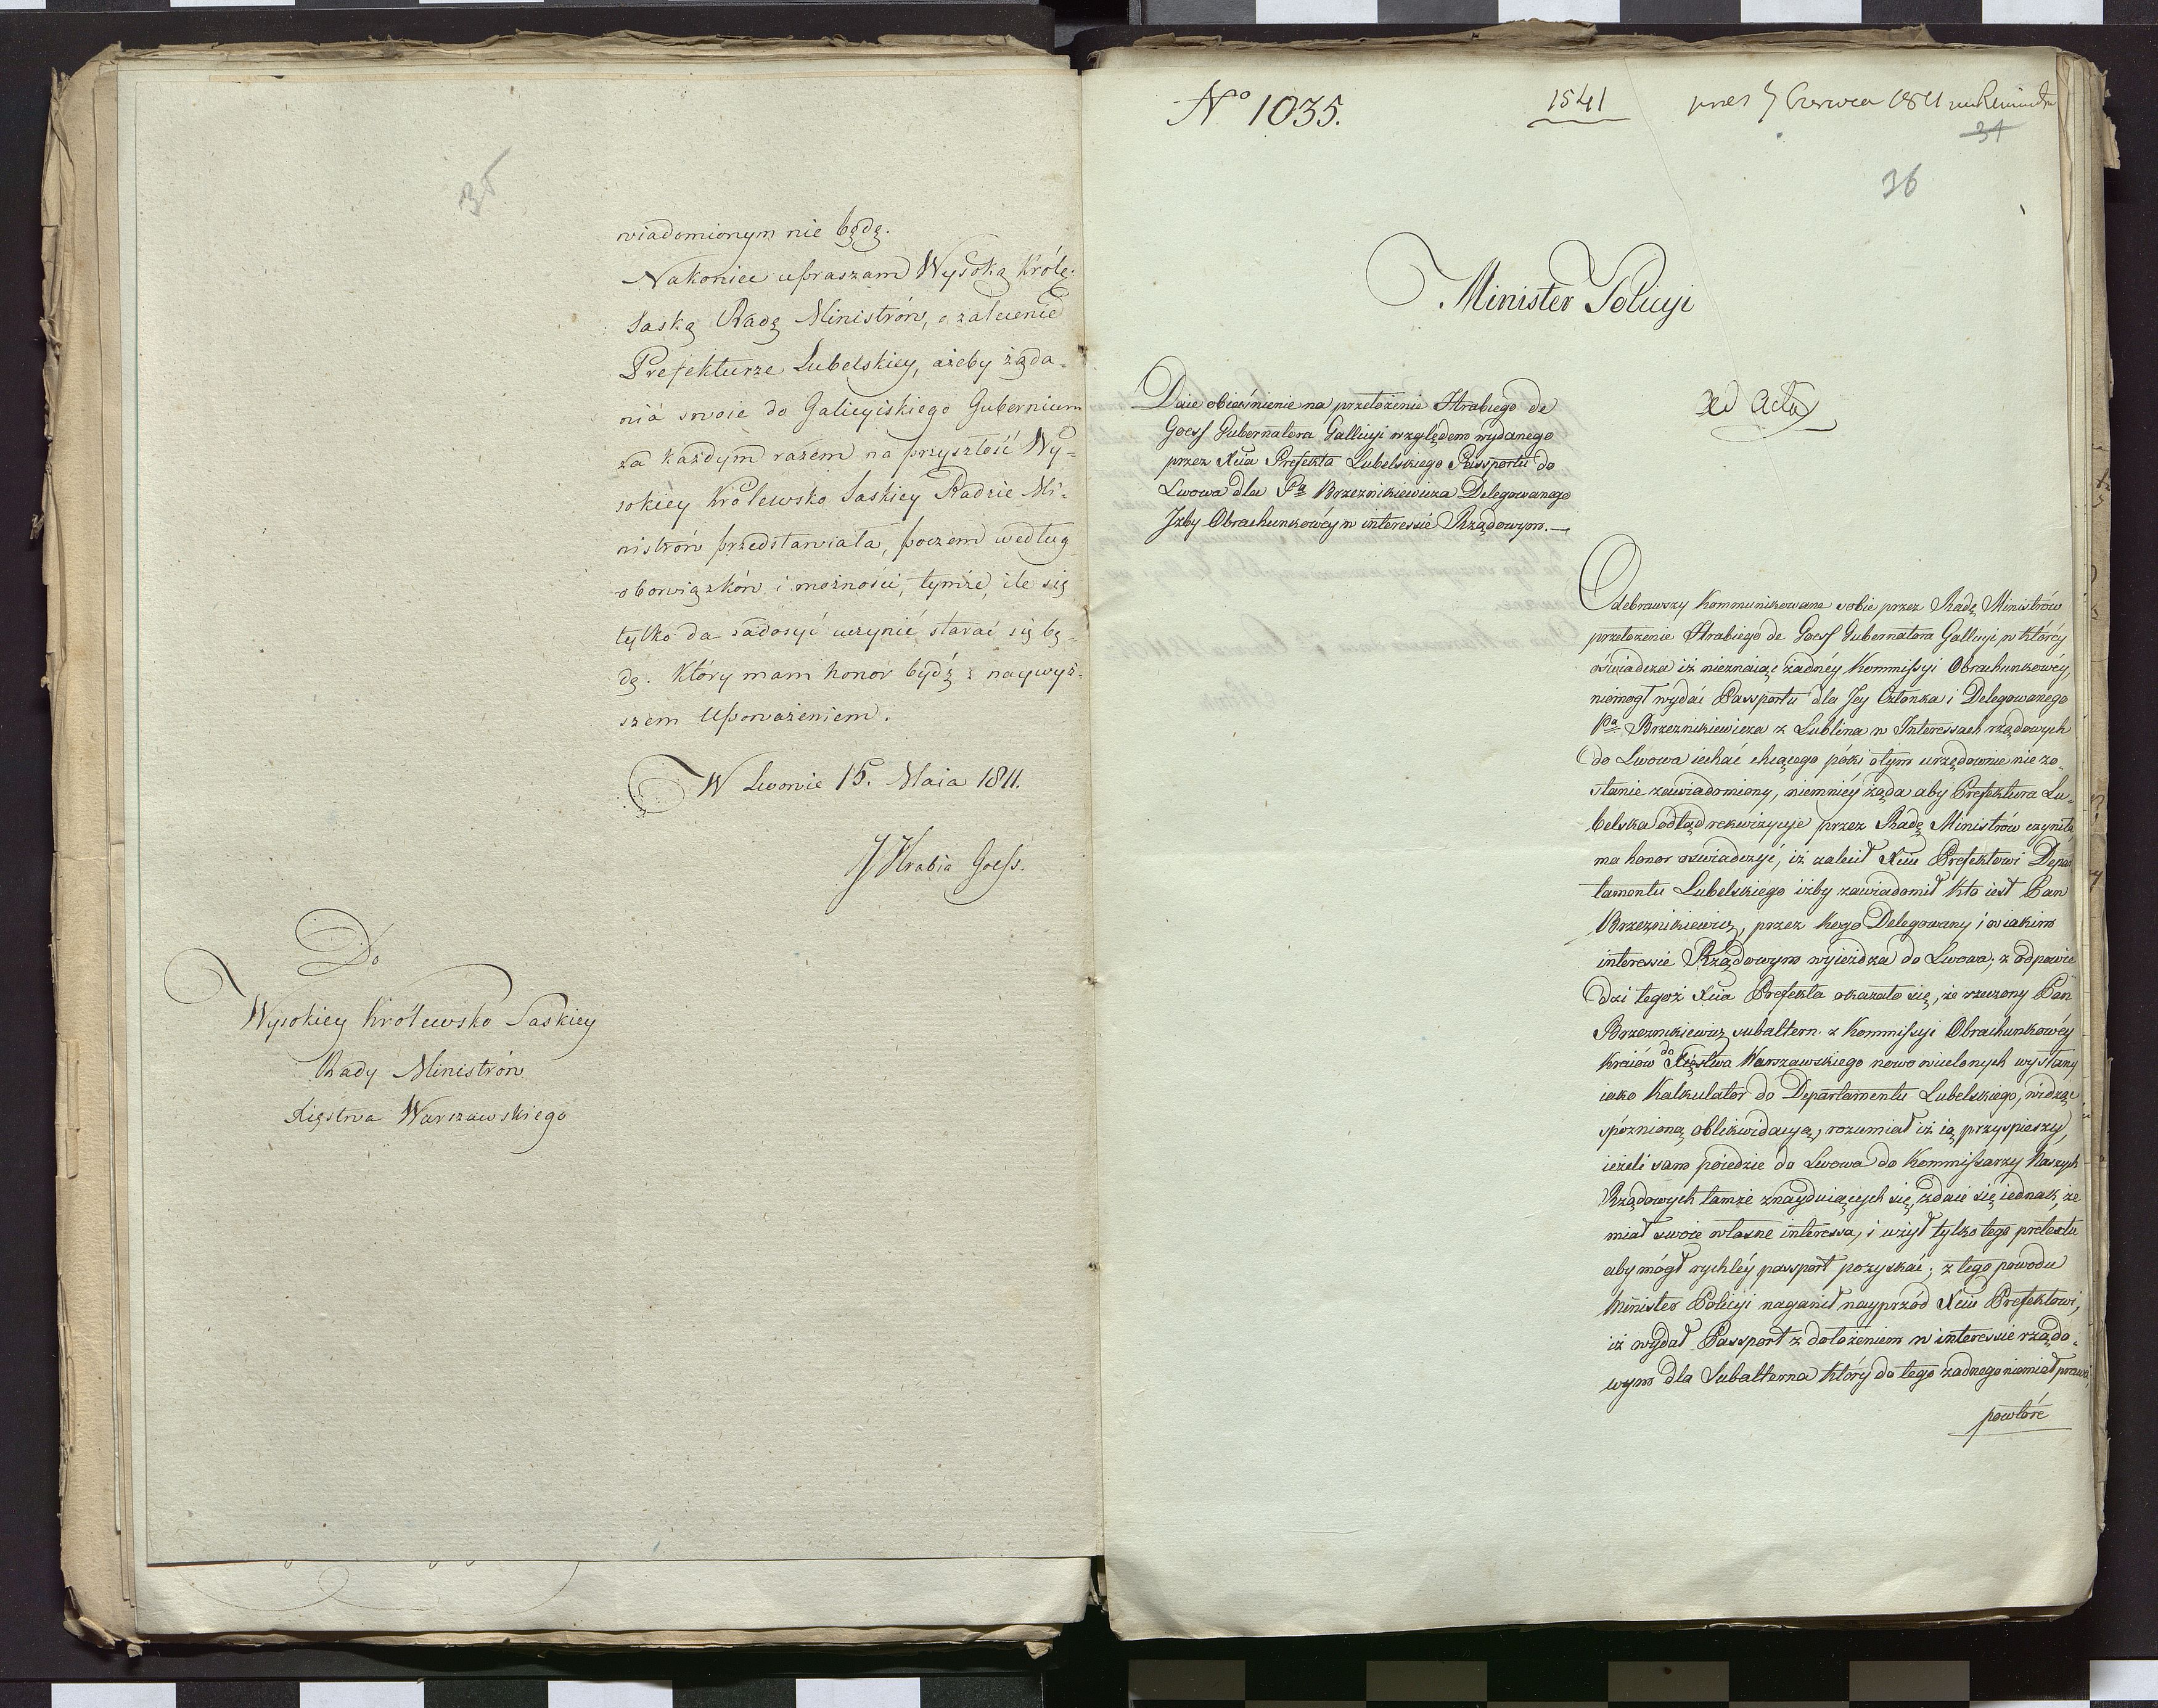 35
wiadomionym nie będę.
Nakoniec upraszam Wysoką Króle:
Saską Radę Ministrów, o zalecenie
Prefekturze Lubelskiey, ażeby żąda-
nia swoie do Galicyiskiego Gubernium
za każdym razem na przyszłość Wy-
sokiey Królewsko Saskiey Radzie Mi-
nistrów przedstawiała, poczem według
obowiązków i możności, tymże, ile się
tylko da zadosyć uczynić starać się bę-
dę. Który mam honor bydź z naywyż-
szem Uposważeniem.
W Lwowie 15. Maia 1811.
J Hrabia Goess.
Do
Wysokiey Królewsko Saskiey
Rady Ministrów
Xięstwa Warszawskiego
No 1035.
1541
pres 7 Czerwca 1811
34
36
Minister Policyi
Daie obiaśnienie na przełożenie Hrabiego de
Goess Gubernatora Gallicyi względem wydanego
przez Xcia Prefekta Lubelskiego Passportu do
Lwowa dla Pa Brzeznikiewicza Delegowanego
Jzby Obrachunkowéy w interessie Rządowym.—
ad Acta
Odebrawszy Kommunikowane sobie przez Radę Ministrów
przełożenie Hrabiego de Goess Gubernatora Gallicyi, w któréy
oświadcza iż nieznaiąc żadnéy Kommissyi Obrachunkowéy,
niemogł wydać Passportu dla Jey Członka i Delegowanego
Pa Brzeznikiewicza z Lublina w Interessach rządowych
do Lwowa iechać chcącego póki otym urzędownie nie zo-
stanie zawiadomiony, niemniéy żąda aby Prefektura Lu-
belska odtąd rekwizycye przez Radę Ministrów czyniła
ma honor oświadczyć, iż zalecił Xciu Prefektowi Depar
tamentu Lubelskiego iżby zawiadomił kto iest Pan
Brzeznikiewicz, przez kogo Delegowany i w iakim
interessie Rządowym wyieżdza do Lwowa; z odpowie
dzi tegoż Xcia Prefekta okazało się, że rzeczony Pan
Brzeznikiewicz subaltern. z Kommissyi Obrachunkowéy
Kraiów do Xięstwa Warszawskiego nowo wcielonych wysłany
iako Kalkulator do Departamentu Lubelskiego, widząc
spóznioną oblikwidacyą, rozumiał iż ią przyspieszy,
ieżeli sam poiedzie do Lwowa do Kommissarzy Naszych
Rządowych tamże znayduiących się, zdaie się iednak, że
miał swoie własne interessa, i użył tylko tego pretextu
aby mógł rychléy passport pozyskać; z tego powodu
Minister Policyi naganił nayprzód Xciu Prefektowi,
iż wydał Passport z dołożeniem w interessie rządo-
wym dla Subalterna który do tego żadnego niemiał prawa,
powtóre